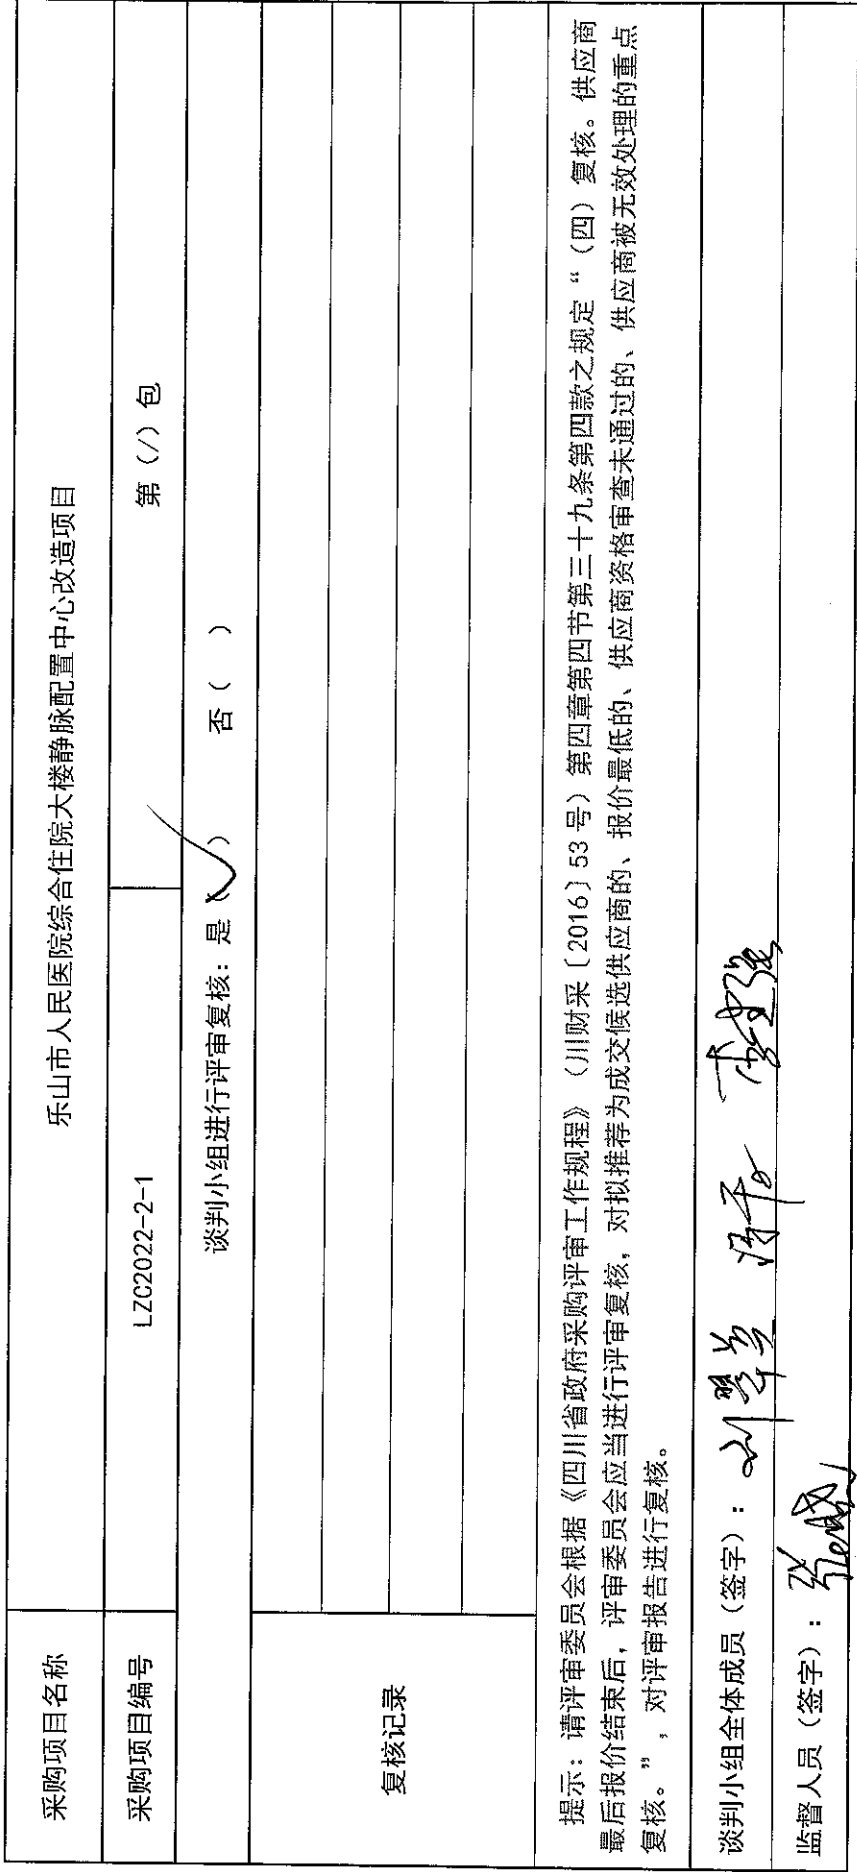 采购项目名称 乐山市人民医院综合住院大楼静脉配置中心改造项目
采购项目编号 LZC2022-2-1 第（/）包
谈判小组进行评审复核：是（√） 否（ ）
复核记录
提示：请评审委员会根据《四川省政府采购评审工作规程》（川财采〔2016〕53号）第四章第四节第三十九条第四款之规定“（四）复核。供应商
最后报价结束后，评审委员会应当进行评审复核，对拟推荐为成交候选供应商的、报价最低的、供应商资格审查未通过的、供应商被无效处理的重点
复核。”，对评审报告进行复核。
谈判小组全体成员（签字）：
监督人员（签字）：